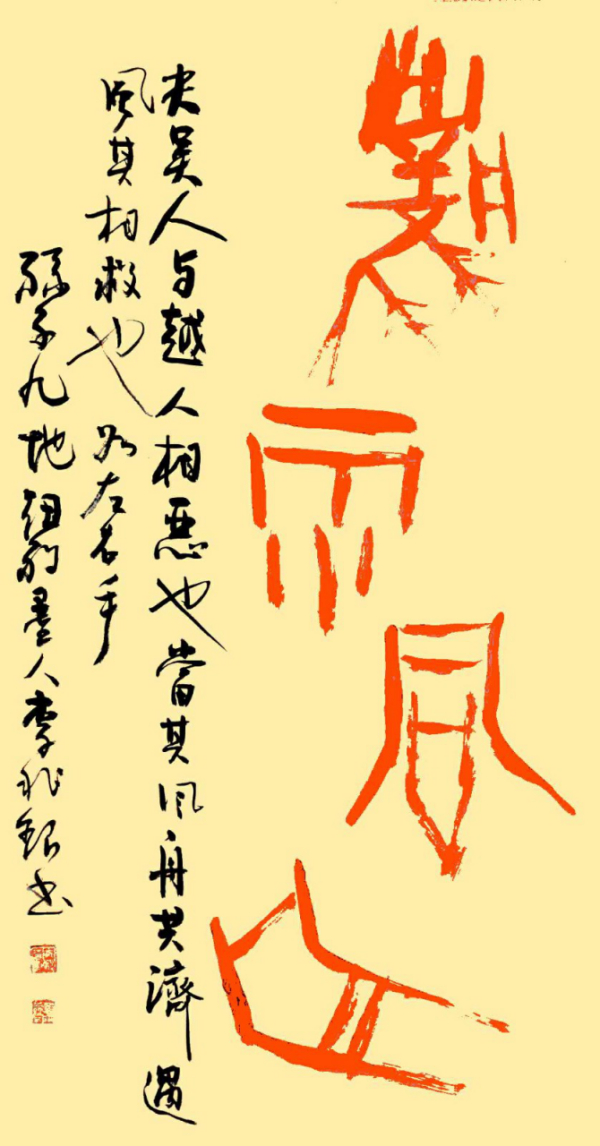 風雨同舟
夫吴人与越人相惡也當其同舟共濟遇
風其相救也如左右手
孫子九地墨人李書